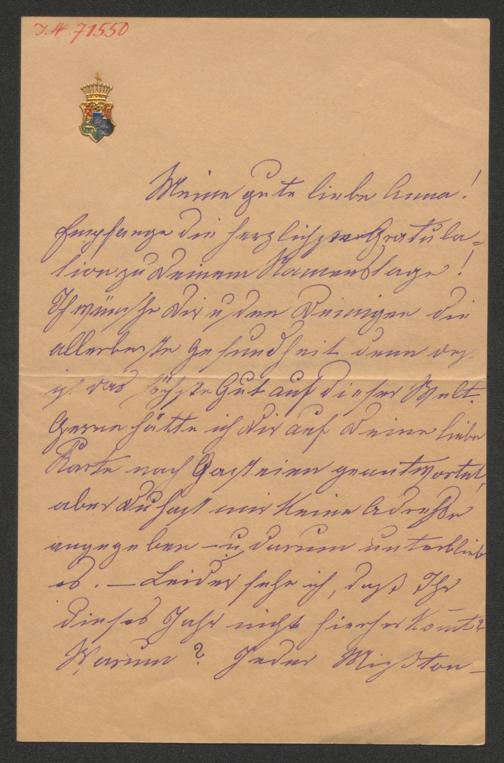 J.N. 71550
Meine gute liebe Anna!
Empfange die herzlichste Gratula=
tion zu Deinem Namenstage!
Ich wünsche Dir u. den Deinigen die
allerbeste Gesundheit denn das
ist das höchste Gut auf dieser Welt.
Gerne hätte ich Dir auf Deine liebe
Karte nach Gastein geantwortet,
aber Du hast mir keine Adresse
angegeben – u. darum unterblieb
es. – Leider sehe ich, daß Ihr
dieses Jahr nicht hierher komt?
Warum? Jeder